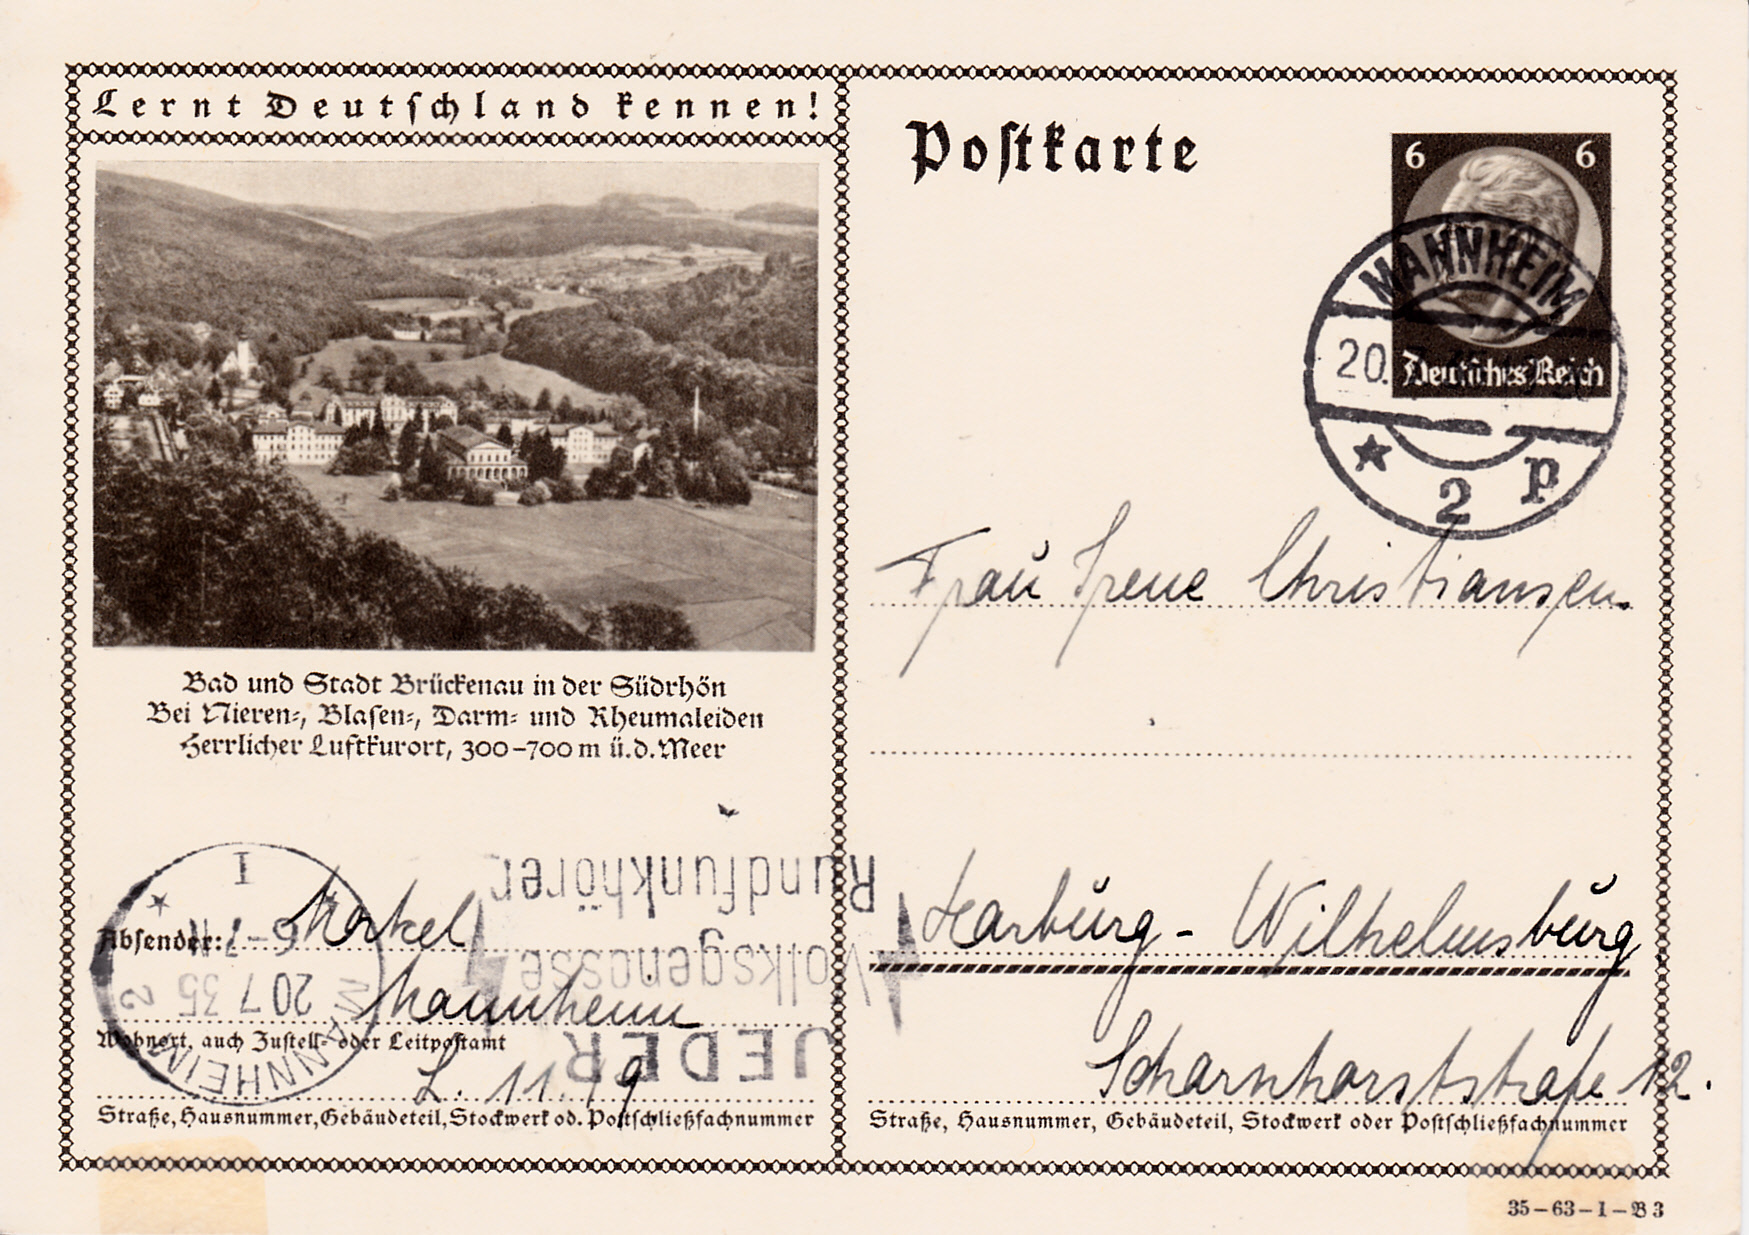 Lernt Deutschland kennen!
Bad und Stadt Brückenau in der Südrhön
Bei Nieren-, Blasen-, Darm- und Rheumaleiden
Herrlicher Luftkurort, 300–700 m ü.d. Meer
Absender: Merkel
Mannheim
Wohnort, auch Zustell- oder Leitpostamt
L. 11. 19
Straße, Hausnummer, Gebäudeteil, Stockwerk od. Postschließfachnummer
MANNHEIM 2
20 7 35
I
JEDER
Volksgenosse
Rundfunkhörer
Postkarte
6 6
Deutsches Reich
MANNHEIM
20.
2 p
Frau Irene Christiansen
Harburg - Wilhelmsburg
Scharnhorststraße 12.
Straße, Hausnummer, Gebäudeteil, Stockwerk oder Postschließfachnummer
35–63–I–B3